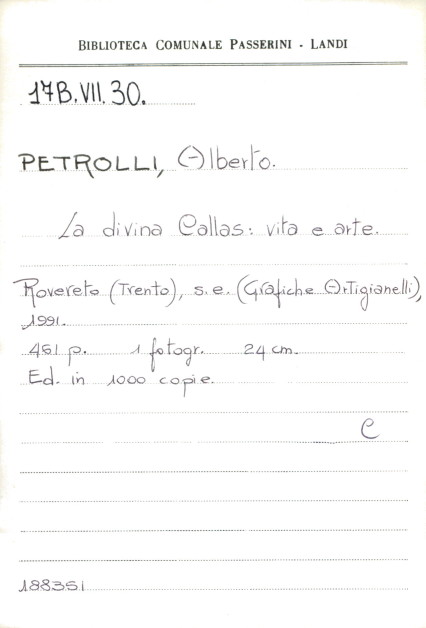 BIBLIOTECA COMUNALE PASSERINI - LANDI
17B.VII.30.
PETROLLI, Alberto.
La divina Callas: vita e arte.
Rovereto (Trento), s.e. (Grafiche Artigianelli),
1991.
461 p. 1 fotogr. 24 cm.
Ed. in 1000 copie.
C
188351